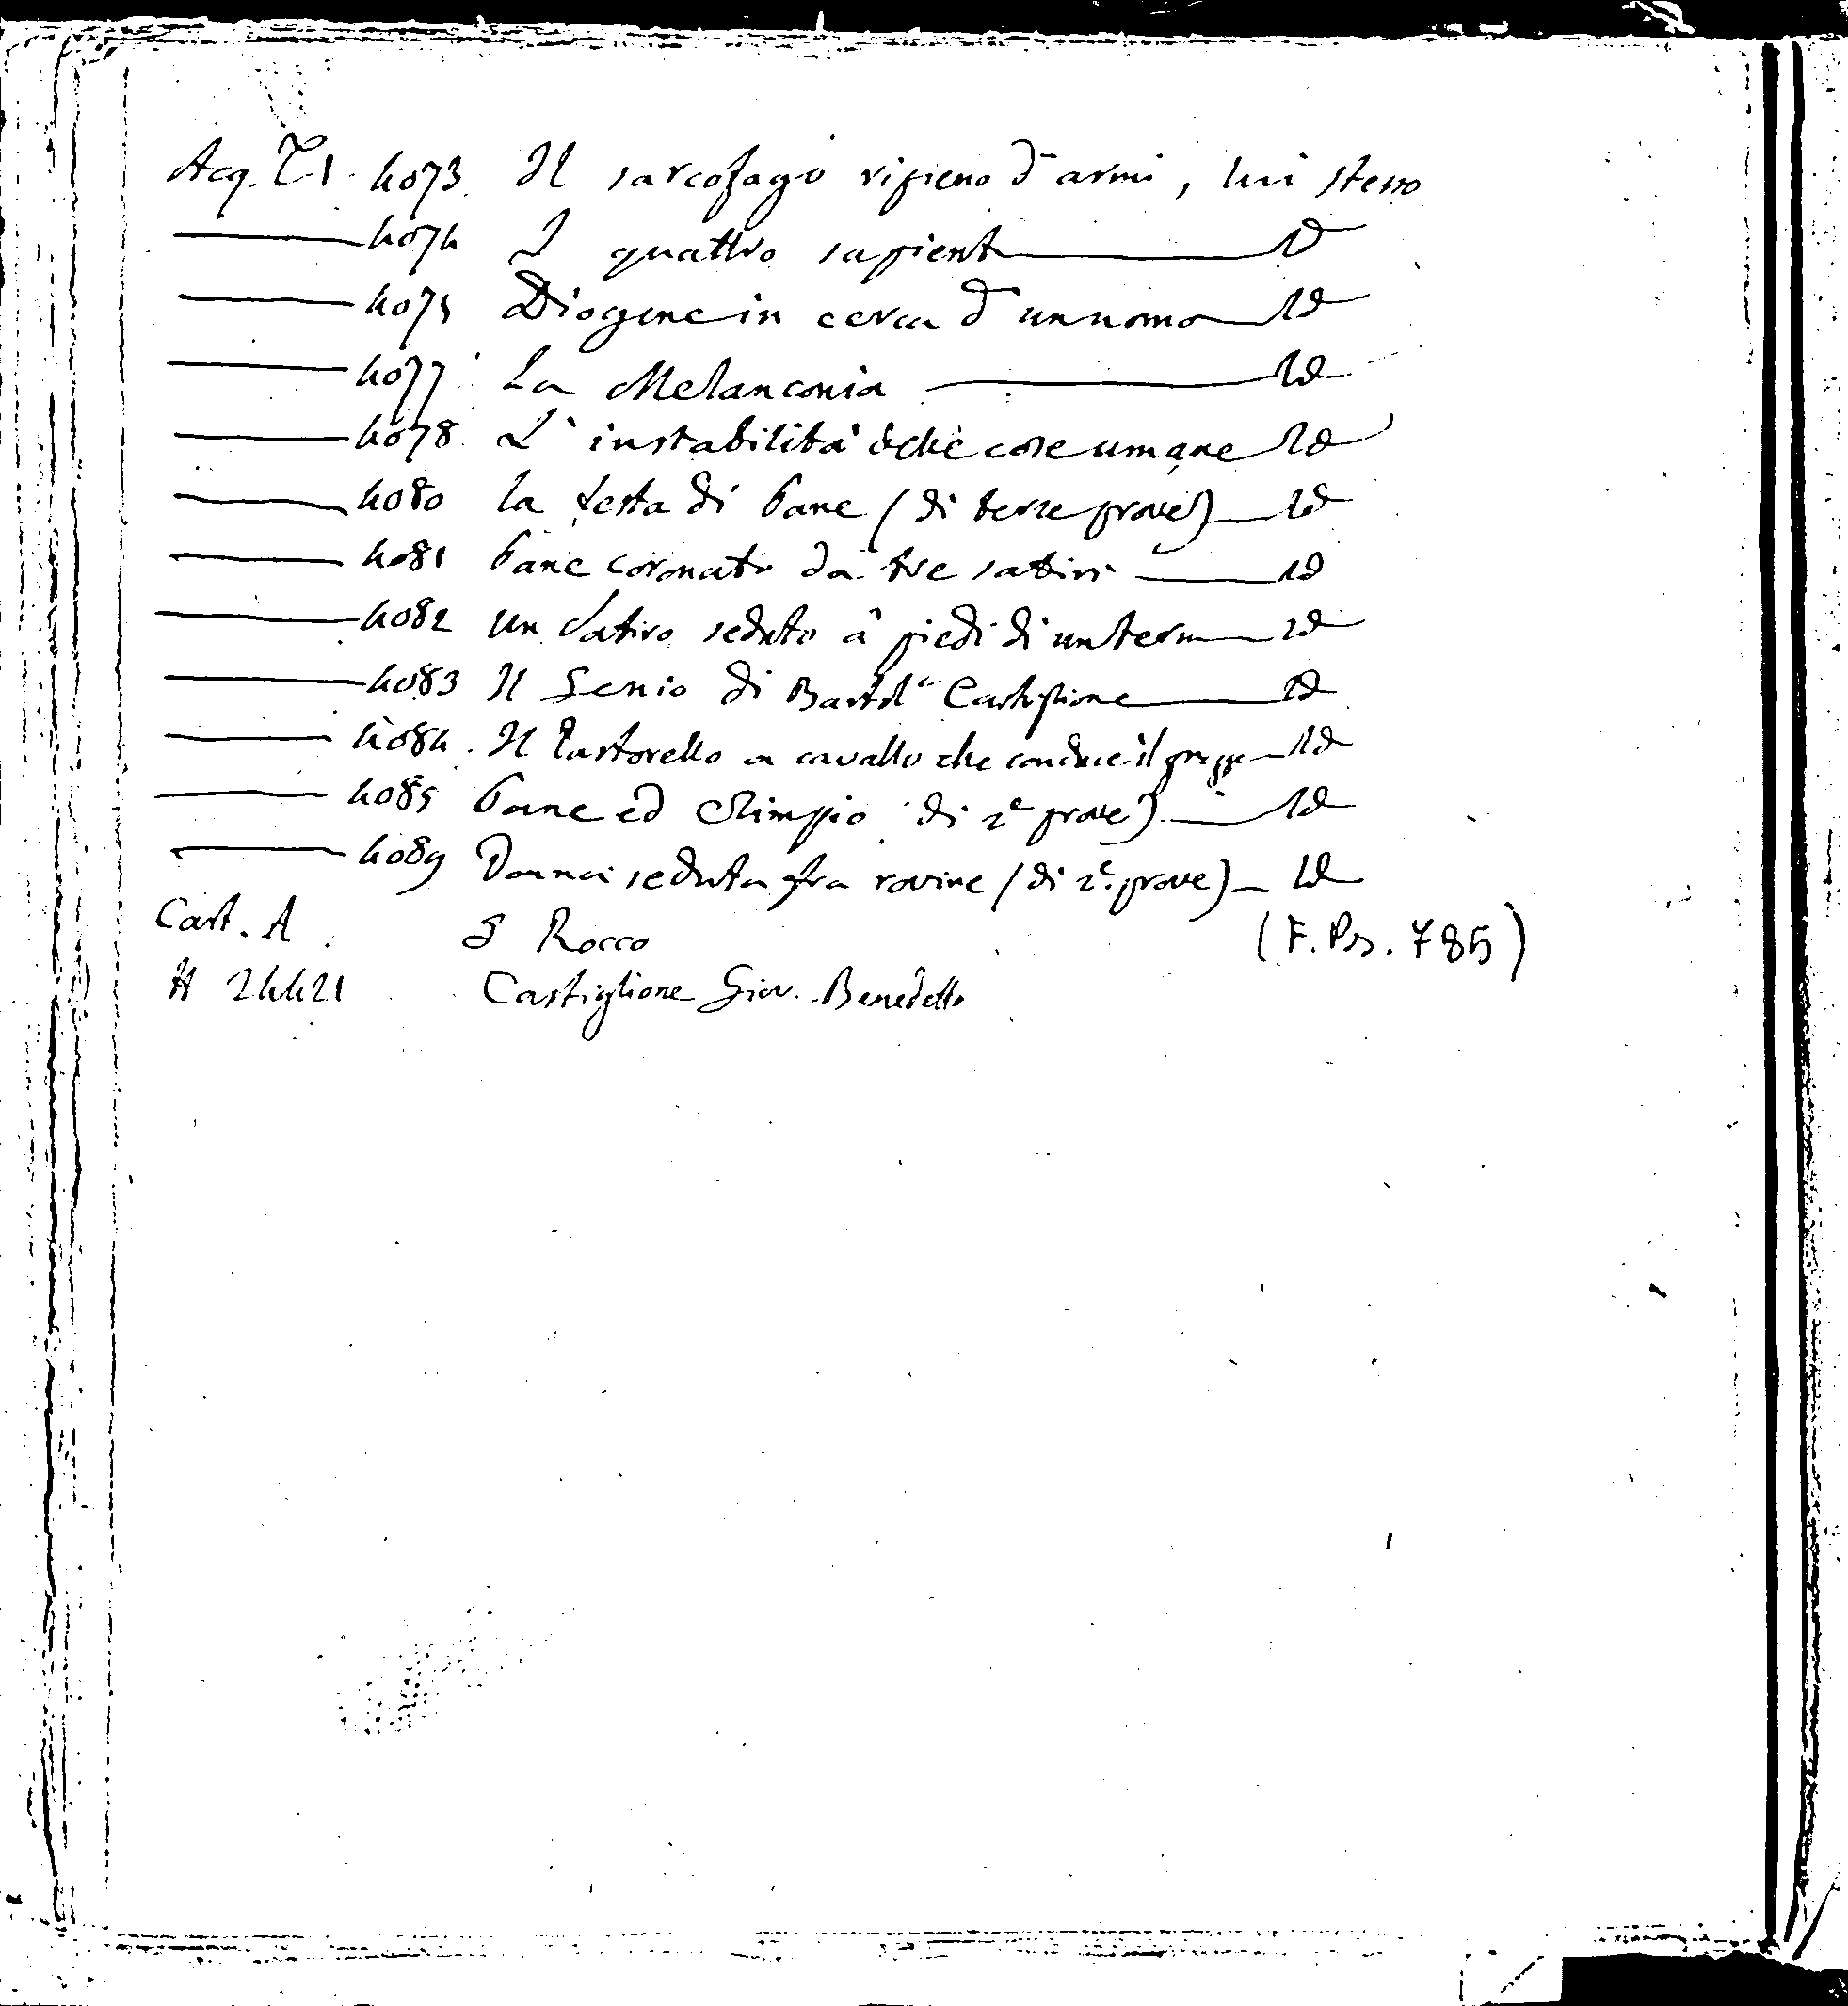 Acq. T1. 4073. Il sarcofago ripieno d'armi, lui stesso
4074 I quattro sapienti Id
4075 Diogene in cerca d'un uomo Id
4077 La Melanconia Id
4078. L'instabilità delle cose umane Id
4080 la testa di Pane (di terze prove) Id
4081 Pane coronato da tre satiri Id
4082 Un Satiro seduto a piedi di un term Id
4083 Il Genio di Castiglione Id
4084. Il Pastorello a cavallo che conduce il gregge Id
4085 Pane ed Olimpio di 2e prove) Id
4089 Donna seduta fra rovine (di 2e. prove) Id
Cart. A. S Rocco (F. Ps. 785)
H 24421 Castiglione Giov. Benedetto